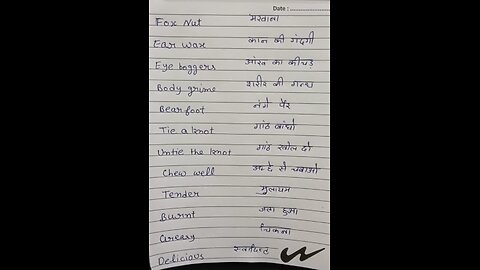 Date :
Fox Nut मखाना
Ear wax कान की गंदगी
Eye boggers आंख का कीचड़
Body grime शरीर की गन्ध
Bearfoot नंगे पैर
Tie a knot गांठ बांधो
Untie the knot गांठ खोल दो
Chew well अच्छे से चबाओ
Tender मुलायम
Burnt जला हुआ
Greasy चिकना
Delicious स्वादिष्ट